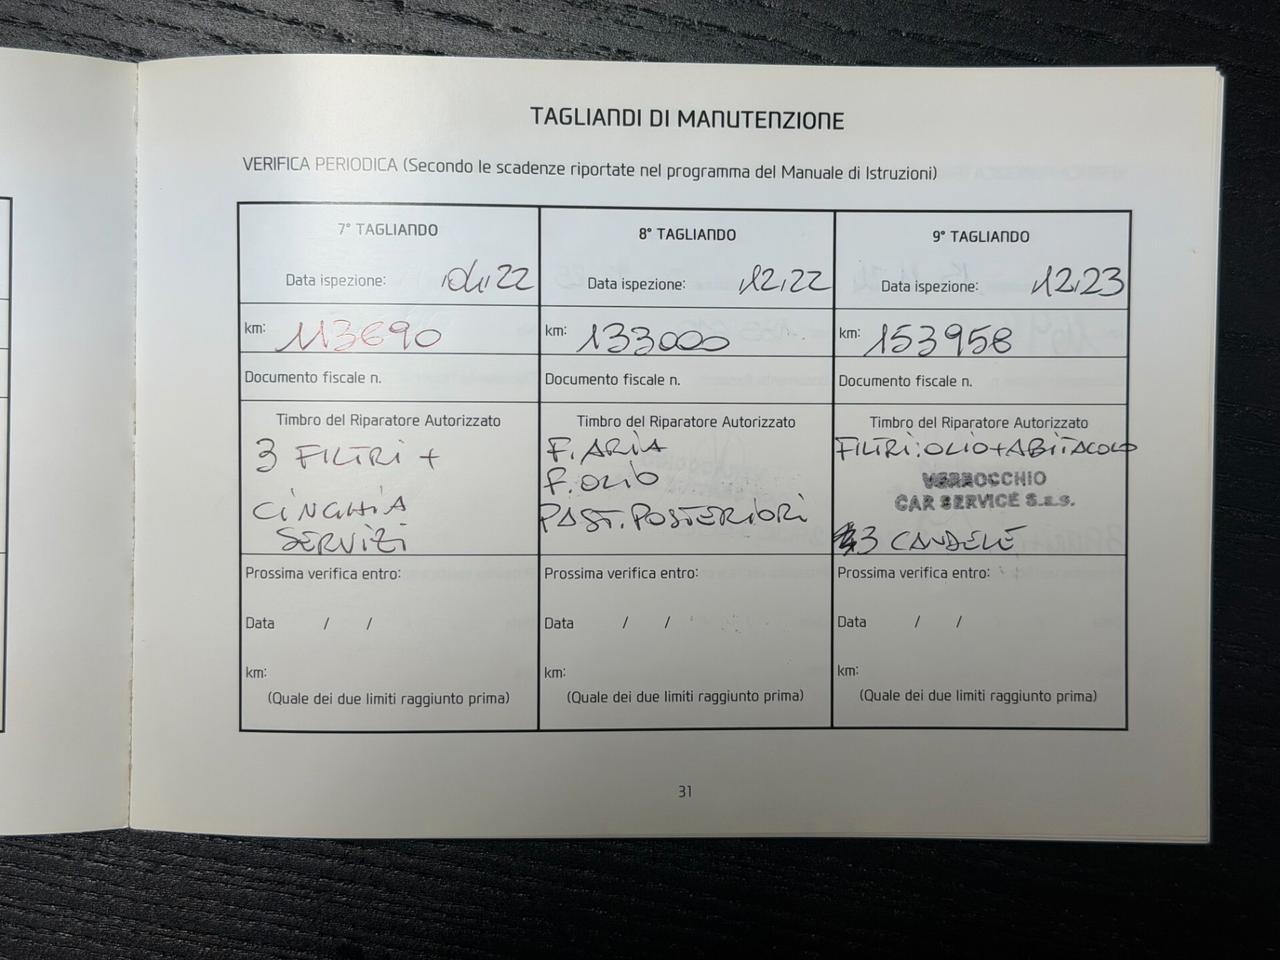 TAGLIANDI DI MANUTENZIONE
VERIFICA PERIODICA (Secondo le scadenze riportate nel programma del Manuale di Istruzioni)
7° TAGLIANDO
Data ispezione: 04,22
km: 113690
Documento fiscale n.
Timbro del Riparatore Autorizzato
3 FILTRI +
CINGHIA
SERVIZI
Prossima verifica entro:
Data / /
km:
(Quale dei due limiti raggiunto prima)
8° TAGLIANDO
Data ispezione: 12,22
km: 133000
Documento fiscale n.
Timbro del Riparatore Autorizzato
F. ARIA
F. OLIO
PAST. POSTERIORI
Prossima verifica entro:
Data / /
km:
(Quale dei due limiti raggiunto prima)
9° TAGLIANDO
Data ispezione: 12,23
km: 153958
Documento fiscale n.
Timbro del Riparatore Autorizzato
FILTRI: OLIO+ABITACOLO
VERROCCHIO
CAR SERVICE S.a.s.
3 CANDELE
Prossima verifica entro:
Data / /
km:
(Quale dei due limiti raggiunto prima)
31